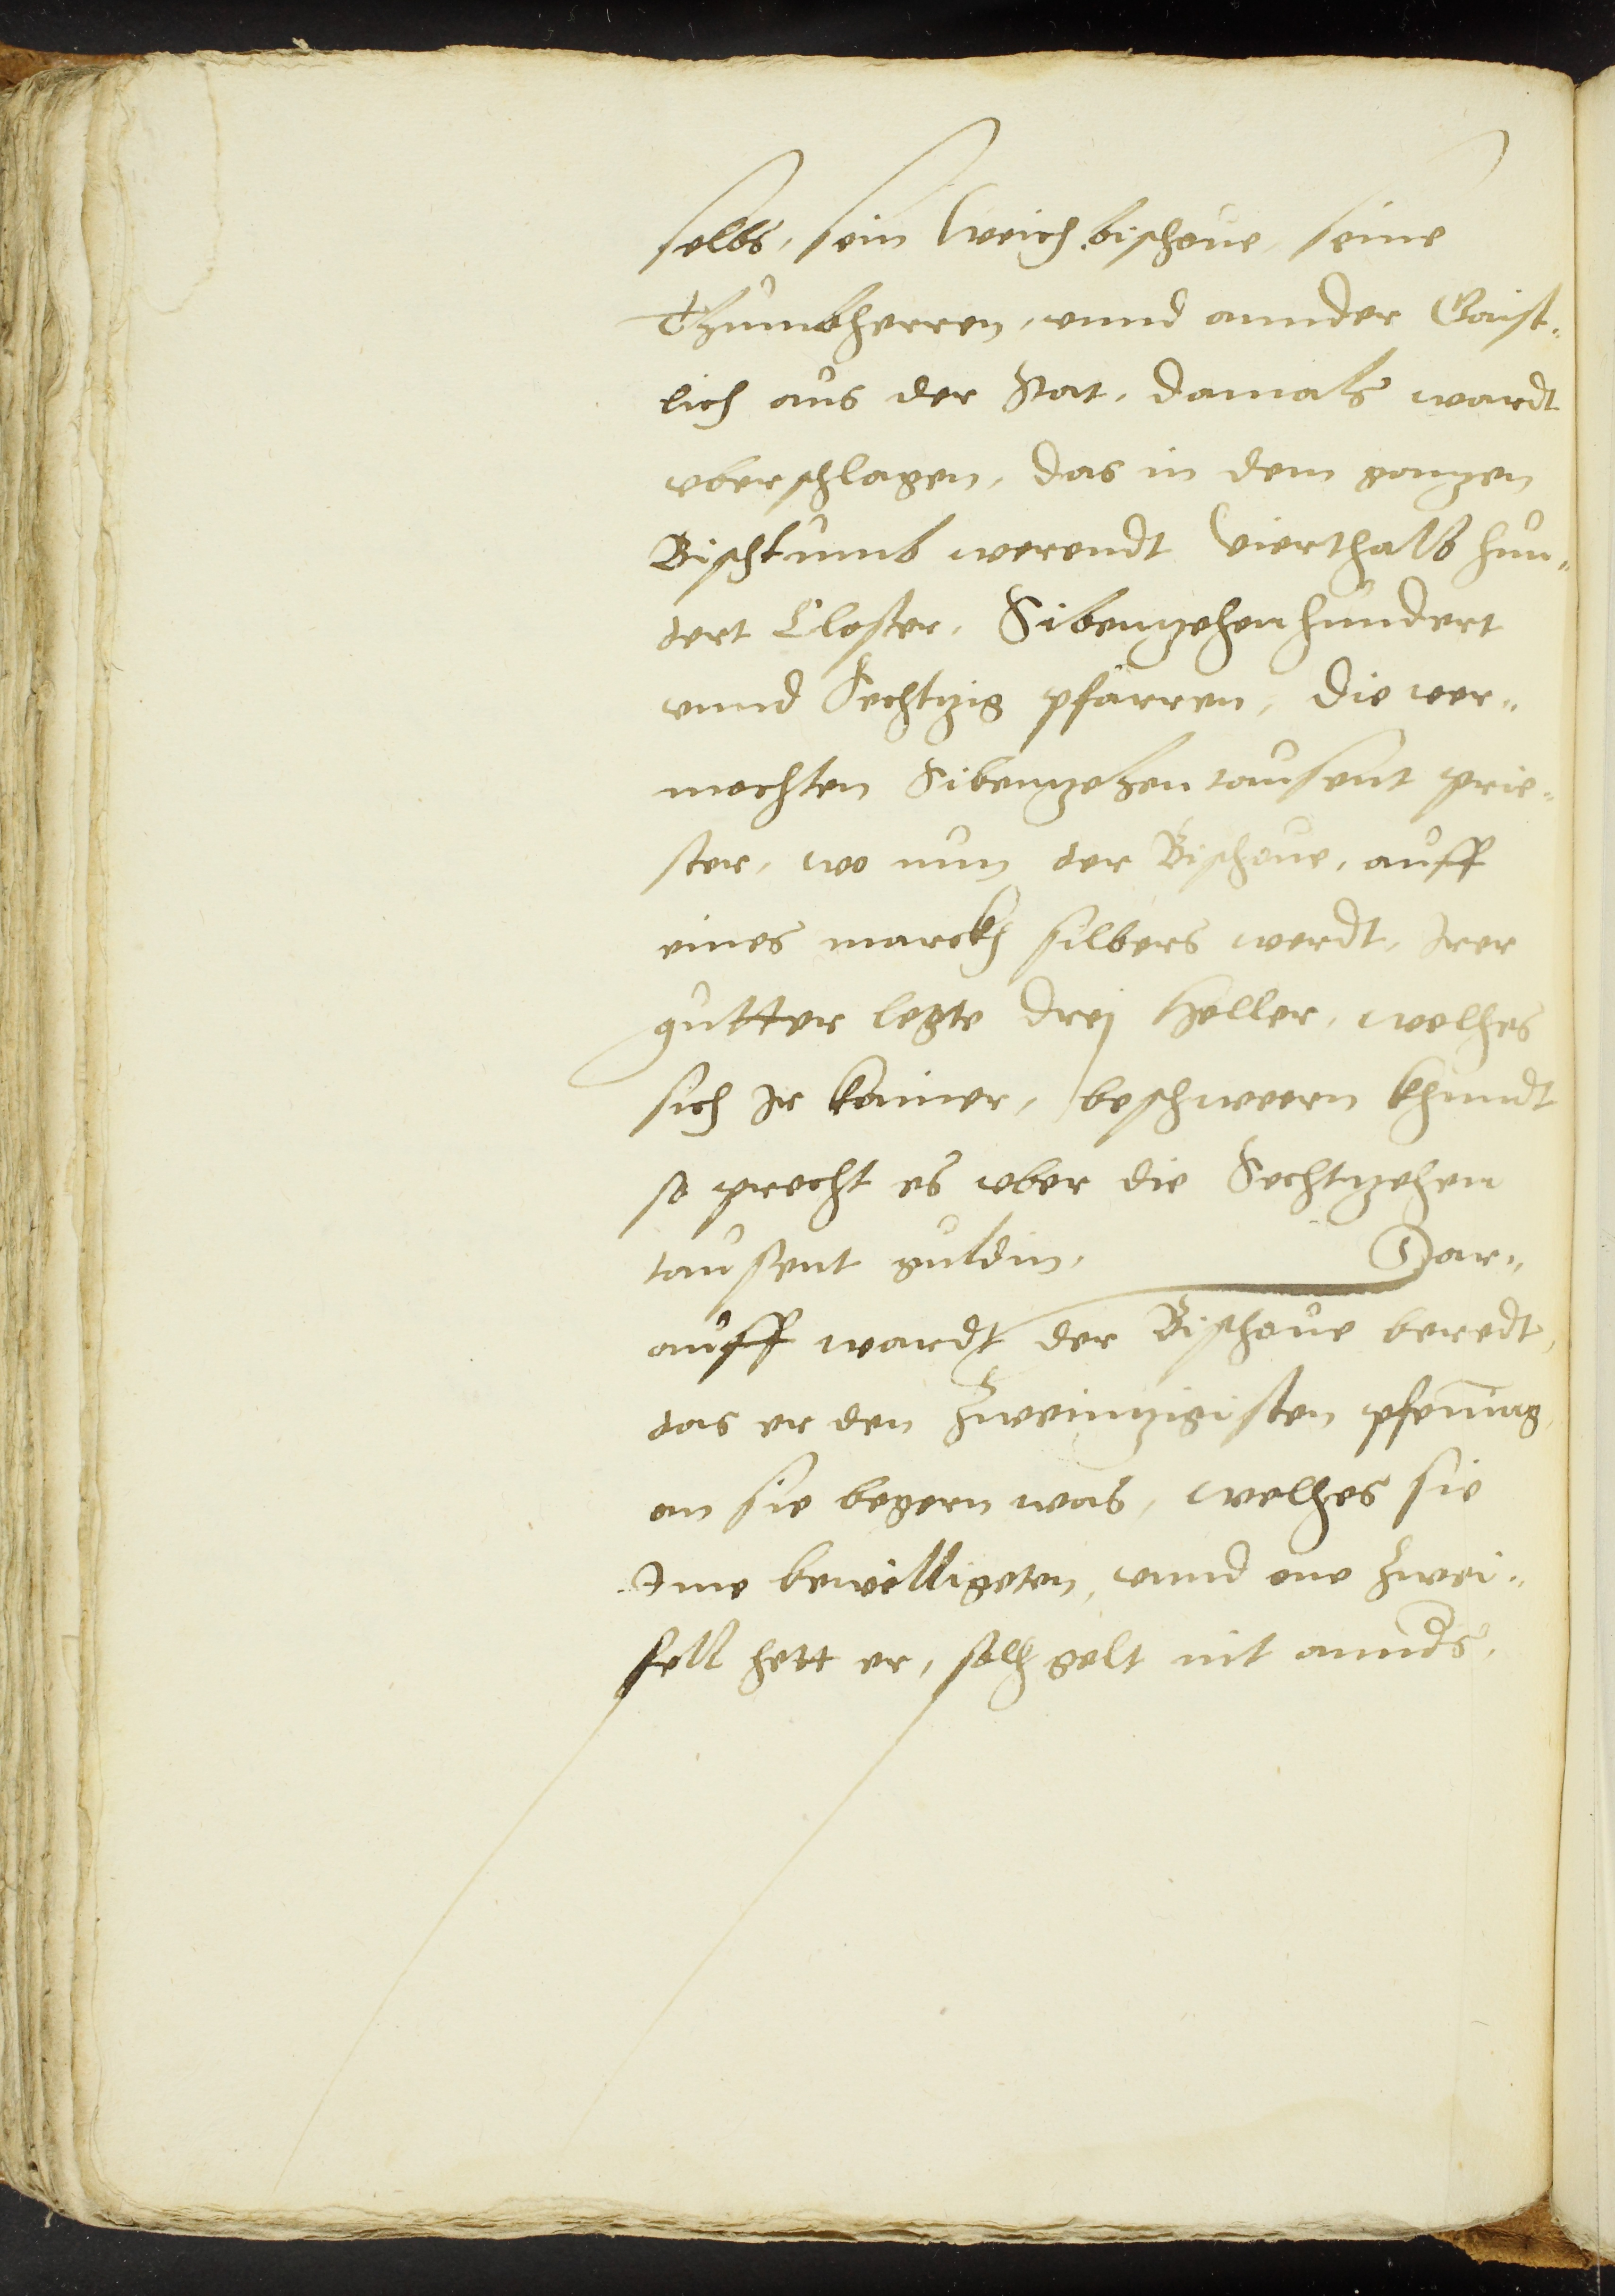 selbs, sein Weich bischoue, seine
Thumbherren, vnnd annder Gaist„
lich aus der Stat, damals wardt
vberschlagen, das in dem ganzen
Bischtumb werendt Vierthalb hun„
dert Closter, Sibenzehenhundert
vnnd Sechtzig pfarren, die ver„
mochten Sibenzehen tausent prie„
ster, wo nun der Bischoue, auff
eines marckh silbers werdt, Irer
gutter legte drej Heller, welhes
sich Ir kainer, beschweern khundt
so precht es vber die Sechtzehen
tausent guldin, Dar„
auff wardt der Bischoue beredt,
das er den Zweintzigisten pfenīg,
an sie begern was, welhes sie
Ime bewilligeten, vnnd one Zwei„
fell hett er, solh gelt nit annds,